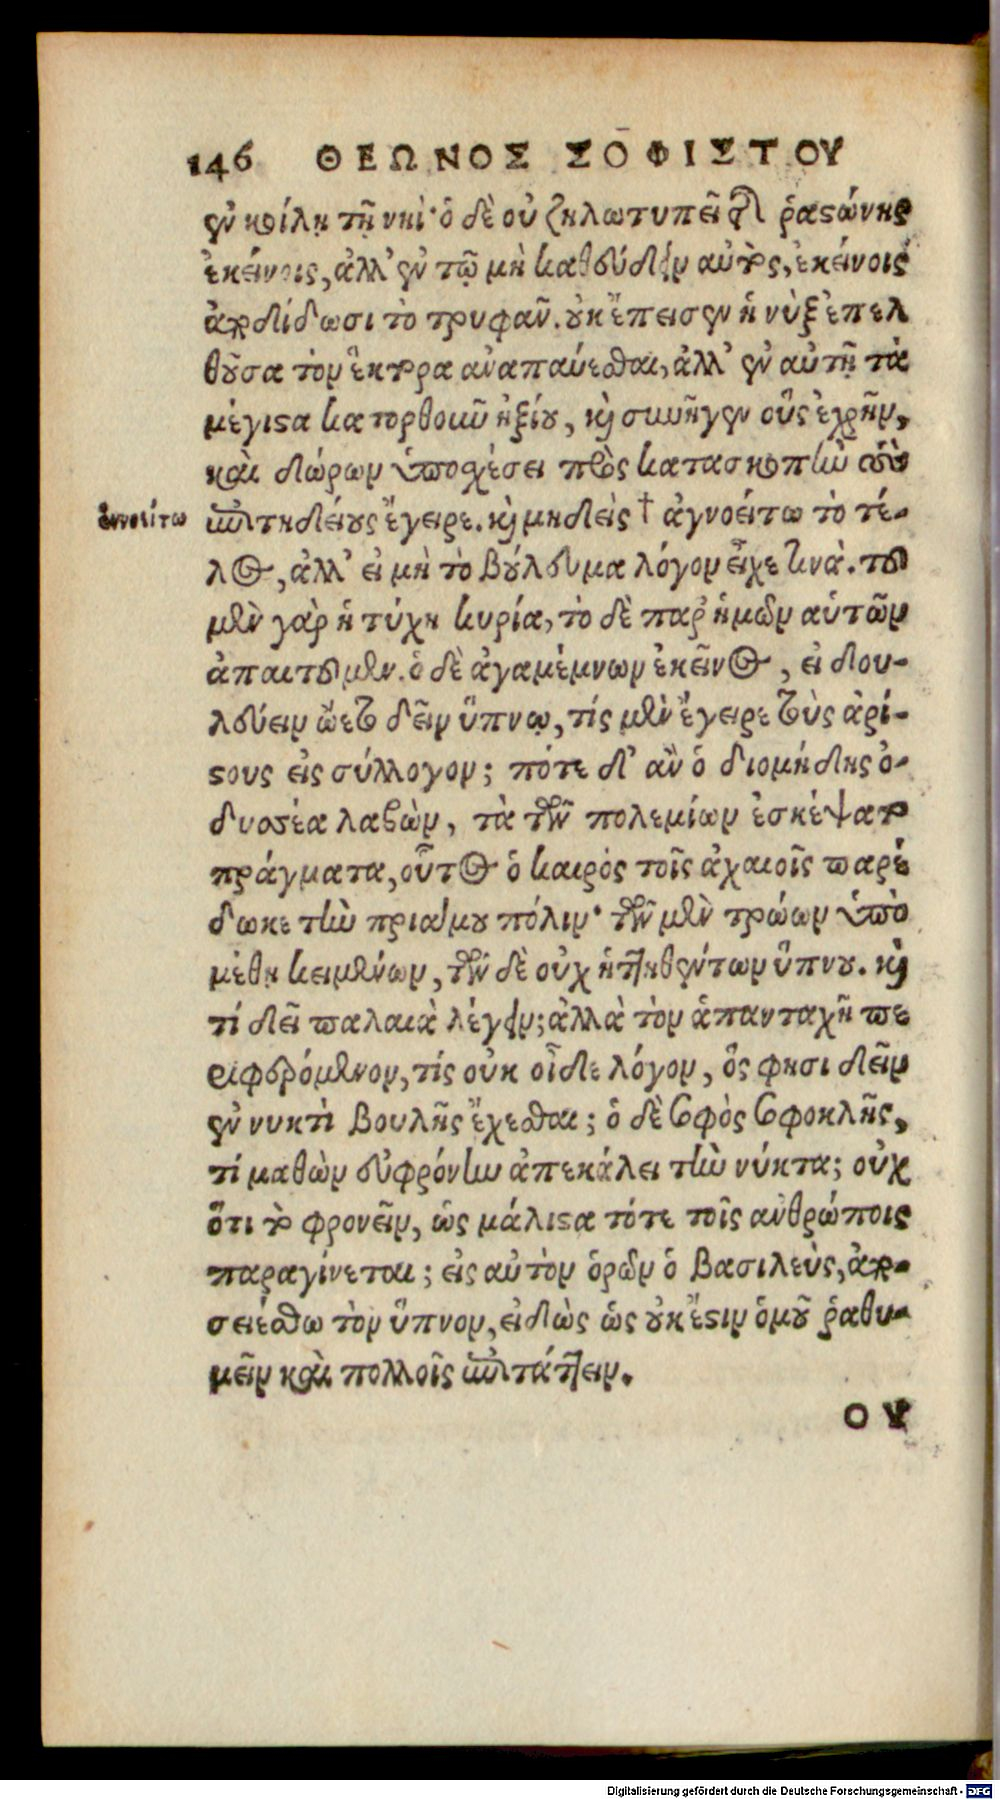 146 ΘΕΩΝΟΣ ΣΟΦΙΣΤΟΥ
ἐν κοίλῃ τῇ νηί· ὁ δὲ οὐ ζηλοτυπεῖ τῆς ῥαστώνης
ἐκείνοις, ἀλλ' ἐν τῷ μὴ καθεύδειν αὐτὸς, ἐκείνοις
ἀποδίδωσι τὸ τρυφᾶν. οὐκ ἔπεισεν ἡ νὺξ ἐπελ
θοῦσα τὸν ἕκτορα ἀναπαύεσθαι, ἀλλ' ἐν αὐτῇ τὰ
μέγιστα κατορθοιῦν ἠξίου, καὶ συνῆγεν οὓς ἐχρῆν,
καὶ δώρων ὑποσχέσει πρὸς κατασκοπὴν τοὺς
ἐννοείτω ἐπιτηδείους ἔγειρε. καὶ μηδεὶς † ἀγνοείτω τὸ τέ-
λος, ἀλλ' εἰ μὴ τὸ βούλευμα λόγον εἶχε τινά. τοῦ
μὲν γὰρ ἡ τύχη κυρία, τὸ δὲ παρ' ἡμῶν αὐτῶν
ἀπαιτοῦμεν. ὁ δὲ ἀγαμέμνων ἐκεῖνος, εἰ δου-
λεύειν ᾤετο δεῖν ὕπνῳ, τίς μὲν ἔγειρε τοὺς ἀρί-
στους εἰς σύλλογον; πότε δ' ἂν ὁ διομήδης ὀ-
δυσσέα λαβὼν, τὰ τῶν πολεμίων ἐσκέψατο
πράγματα, οὗτος ὁ καιρὸς τοῖς ἀχαιοῖς παρέ
δωκε τὴν πριάμου πόλιν· τῶν μὲν τρώων ὑπὸ
μέθῃ κειμένων, τῶν δὲ οὐχ ἡττηθέντων ὕπνου. καὶ
τί δεῖ παλαιὰ λέγειν; ἀλλὰ τὸν ἁπανταχῆ πε
ριφερόμενον, τίς οὐκ οἶδε λόγον, ὅς φησι δεῖν
ἐν νυκτὶ βουλῆς ἔχεσθαι; ὁ δὲ σοφὸς σοφοκλῆς,
τί μαθὼν εὐφρόνην ἀπεκάλει τὴν νύκτα; οὐχ
ὅτι τὸ φρονεῖν, ὡς μάλιστα τότε τοῖς ἀνθρώποις
παραγίνεται; εἰς αὐτὸν ὁρῶν ὁ βασιλεὺς, ἀπο-
σειέσθω τὸν ὕπνον, εἰδὼς ὡς οὐκ ἔστιν ὁμοῦ ῥαθυ-
μεῖν καὶ πολλοῖς ἐπιτάττειν.
ΟΥ
Digitalisierung gefördert durch die Deutsche Forschungsgemeinschaft - DFG